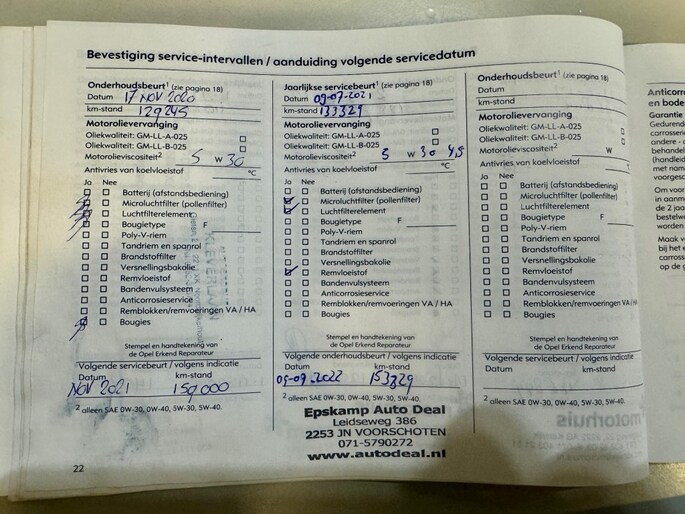 Bevestiging service-intervallen / aanduiding volgende servicedatum
Onderhoudsbeurt¹ (zie pagina 18)
Datum 17 NOV 2020
km-stand 129245
Motorolievervanging
Oliekwaliteit: GM-LL-A-025
Oliekwaliteit: GM-LL-B-025
Motorolieviscositeit² 5 W 30
Antivries van koelvloeistof °C
Ja Nee
Batterij (afstandsbediening)
Microluchtfilter (pollenfilter)
Luchtfilterelement
Bougietype F
Poly-V-riem
Tandriem en spanrol
Brandstoffilter
Versnellingsbakolie
Remvloeistof
Bandenvulsysteem
Anticorrosieservice
Remblokken/remvoeringen VA / HA
Bougies
Stempel en handtekening van
de Opel Erkend Reparateur
Volgende servicebeurt / volgens indicatie
Datum km-stand
NOV 2021 159000
² alleen SAE 0W-30, 0W-40, 5W-30, 5W-40.
22
Jaarlijkse servicebeurt¹ (zie pagina 18)
Datum 09-07-2021
km-stand 133329
Motorolievervanging
Oliekwaliteit: GM-LL-A-025
Oliekwaliteit: GM-LL-B-025
Motorolieviscositeit² 5 W 30 4,5
Antivries van koelvloeistof °C
Ja Nee
Batterij (afstandsbediening)
Microluchtfilter (pollenfilter)
Luchtfilterelement
Bougietype F
Poly-V-riem
Tandriem en spanrol
Brandstoffilter
Versnellingsbakolie
Remvloeistof
Bandenvulsysteem
Anticorrosieservice
Remblokken/remvoeringen VA / HA
Bougies
Stempel en handtekening van
de Opel Erkend Reparateur
Volgende onderhoudsbeurt / volgens indicatie
Datum km-stand
09-07-2022 153329
² alleen SAE 0W-30, 0W-40, 5W-30, 5W-40.
Epskamp Auto Deal
Leidseweg 386
2253 JN VOORSCHOTEN
071-5790272
www.autodeal.nl
Onderhoudsbeurt¹ (zie pagina 18)
Datum
km-stand
Motorolievervanging
Oliekwaliteit: GM-LL-A-025
Oliekwaliteit: GM-LL-B-025
Motorolieviscositeit² W
Antivries van koelvloeistof °C
Ja Nee
Batterij (afstandsbediening)
Microluchtfilter (pollenfilter)
Luchtfilterelement
Bougietype F
Poly-V-riem
Tandriem en spanrol
Brandstoffilter
Versnellingsbakolie
Remvloeistof
Bandenvulsysteem
Anticorrosieservice
Remblokken/remvoeringen VA / HA
Bougies
Stempel en handtekening van
de Opel Erkend Reparateur
Volgende servicebeurt / volgens indicatie
Datum km-stand
² alleen SAE 0W-30, 0W-40, 5W-30, 5W-40.
Anticorr
en bode
Garantie
Gedurend
carrosseri
andere -
behandel
(handleid
met nam
voorgesc
Om voor
in aanm
de 2 jaa
bestel
worden
Maak v
bij het e
carross
op de g